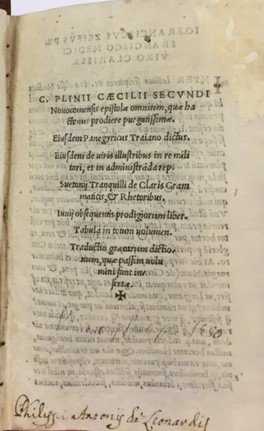 C. PLINII CÆCILII SECVNDI
Nouocomensis epistolæ omnium, quæ ha
ctenus prodiere purgatissimæ.
Eiusdem Panegyricus Traiano dictus.
Eiusdem de uiris illustribus in re mili
tari, et in administrāda rep.
Suetonij Tranquilli de Claris Gram
maticis, & Rhetoribus.
Iulij obsequentis prodigiorum liber.
Tabula in totum uolumen.
Traductio græcarum dictio-
num, quæ passim uolu
mini sunt in-
sertæ.
Philippi Antonij de Leonardis